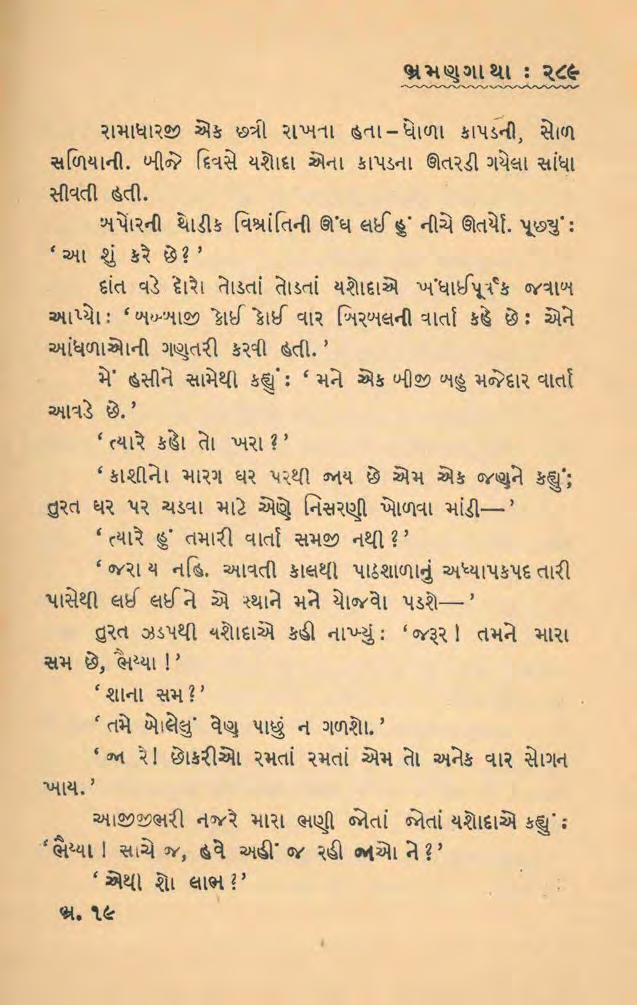 ભ્રમણગાથા : ૨૮૯
રામાધારજી એક છત્રી રાખતા હતા – ધોળા કાપડની, સોળ
સળિયાની. બીજે દિવસે યશોદા એના કાપડના ઊતરડી ગયેલા સાંધા
સીવતી હતી.
બપોરની થોડીક વિશ્રાંતિની ઊંઘ લઈ હું નીચે ઊતર્યો. પૂછ્યું :
‘ આ શું કરે છે? ’
દાંત વડે દોરો તોડતાં તોડતાં યશોદાએ ખંધાઈપૂર્વક જવાબ
આપ્યો : ‘ બબ્બાજી કોઈ કોઈ વાર બિરબલની વાર્તા કહે છે : એને
આંધળાઓની ગણતરી કરવી હતી. ’
મેં હસીને સામેથી કહ્યું : ‘ મને એક બીજી બહુ મજેદાર વાર્તા
આવડે છે. ’
‘ ત્યારે કહો તો ખરા ? ’
‘ કાશીનો મારગ ઘર પરથી જાય છે એમ એક જણને કહ્યું;
તુરત ઘર પર ચડવા માટે એણે નિસરણી ખોળવા માંડી— ’
‘ ત્યારે હું તમારી વાર્તા સમજી નથી ? ’
‘ જરા ય નહિ. આવતી કાલથી પાઠશાળાનું અધ્યાપકપદ તારી
પાસેથી લઈ લઈને એ સ્થાને મને યોજવો પડશે— ’
તુરત ઝડપથી યશોદાએ કહી નાખ્યું : ‘ જરૂર ! તમને મારા
સમ છે, ભૈય્યા ! ’
‘ શાના સમ ? ’
‘ તમે બોલેલું વેણ પાછું ન ગળશો. ’
‘ જા રે ! છોકરીઓ રમતાં રમતાં એમ તો અનેક વાર સોગન
ખાય. ’
આજીજીભરી નજરે મારા ભણી જોતાં જોતાં યશોદાએ કહ્યું :
‘ ભૈય્યા ! સાચે જ, હવે અહીં જ રહી જાઓ ને ? ’
‘ એથી શો લાભ ? ’
ભ્ર. ૧૯